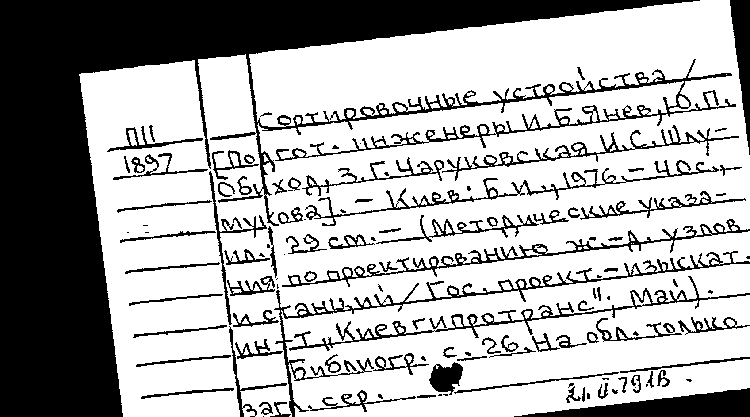 Сортировочные устройства /
П11
1897
[Подгот. инженеры И.Б.Янев, Ю.П.
Обиход, З.Г.Чаруковская, И.С.Шлу-
мукова]. – Киев: Б.И., 1976. – 40с.,
ил.; 29 см. – (Методические указа-
ния по проектированию ж.-д. узлов
и станций / Гос. проект.-изыскат.
ин-т „Киевгипротранс"; Май).
Библиогр. с. 26. На обл. только
загл. сер.